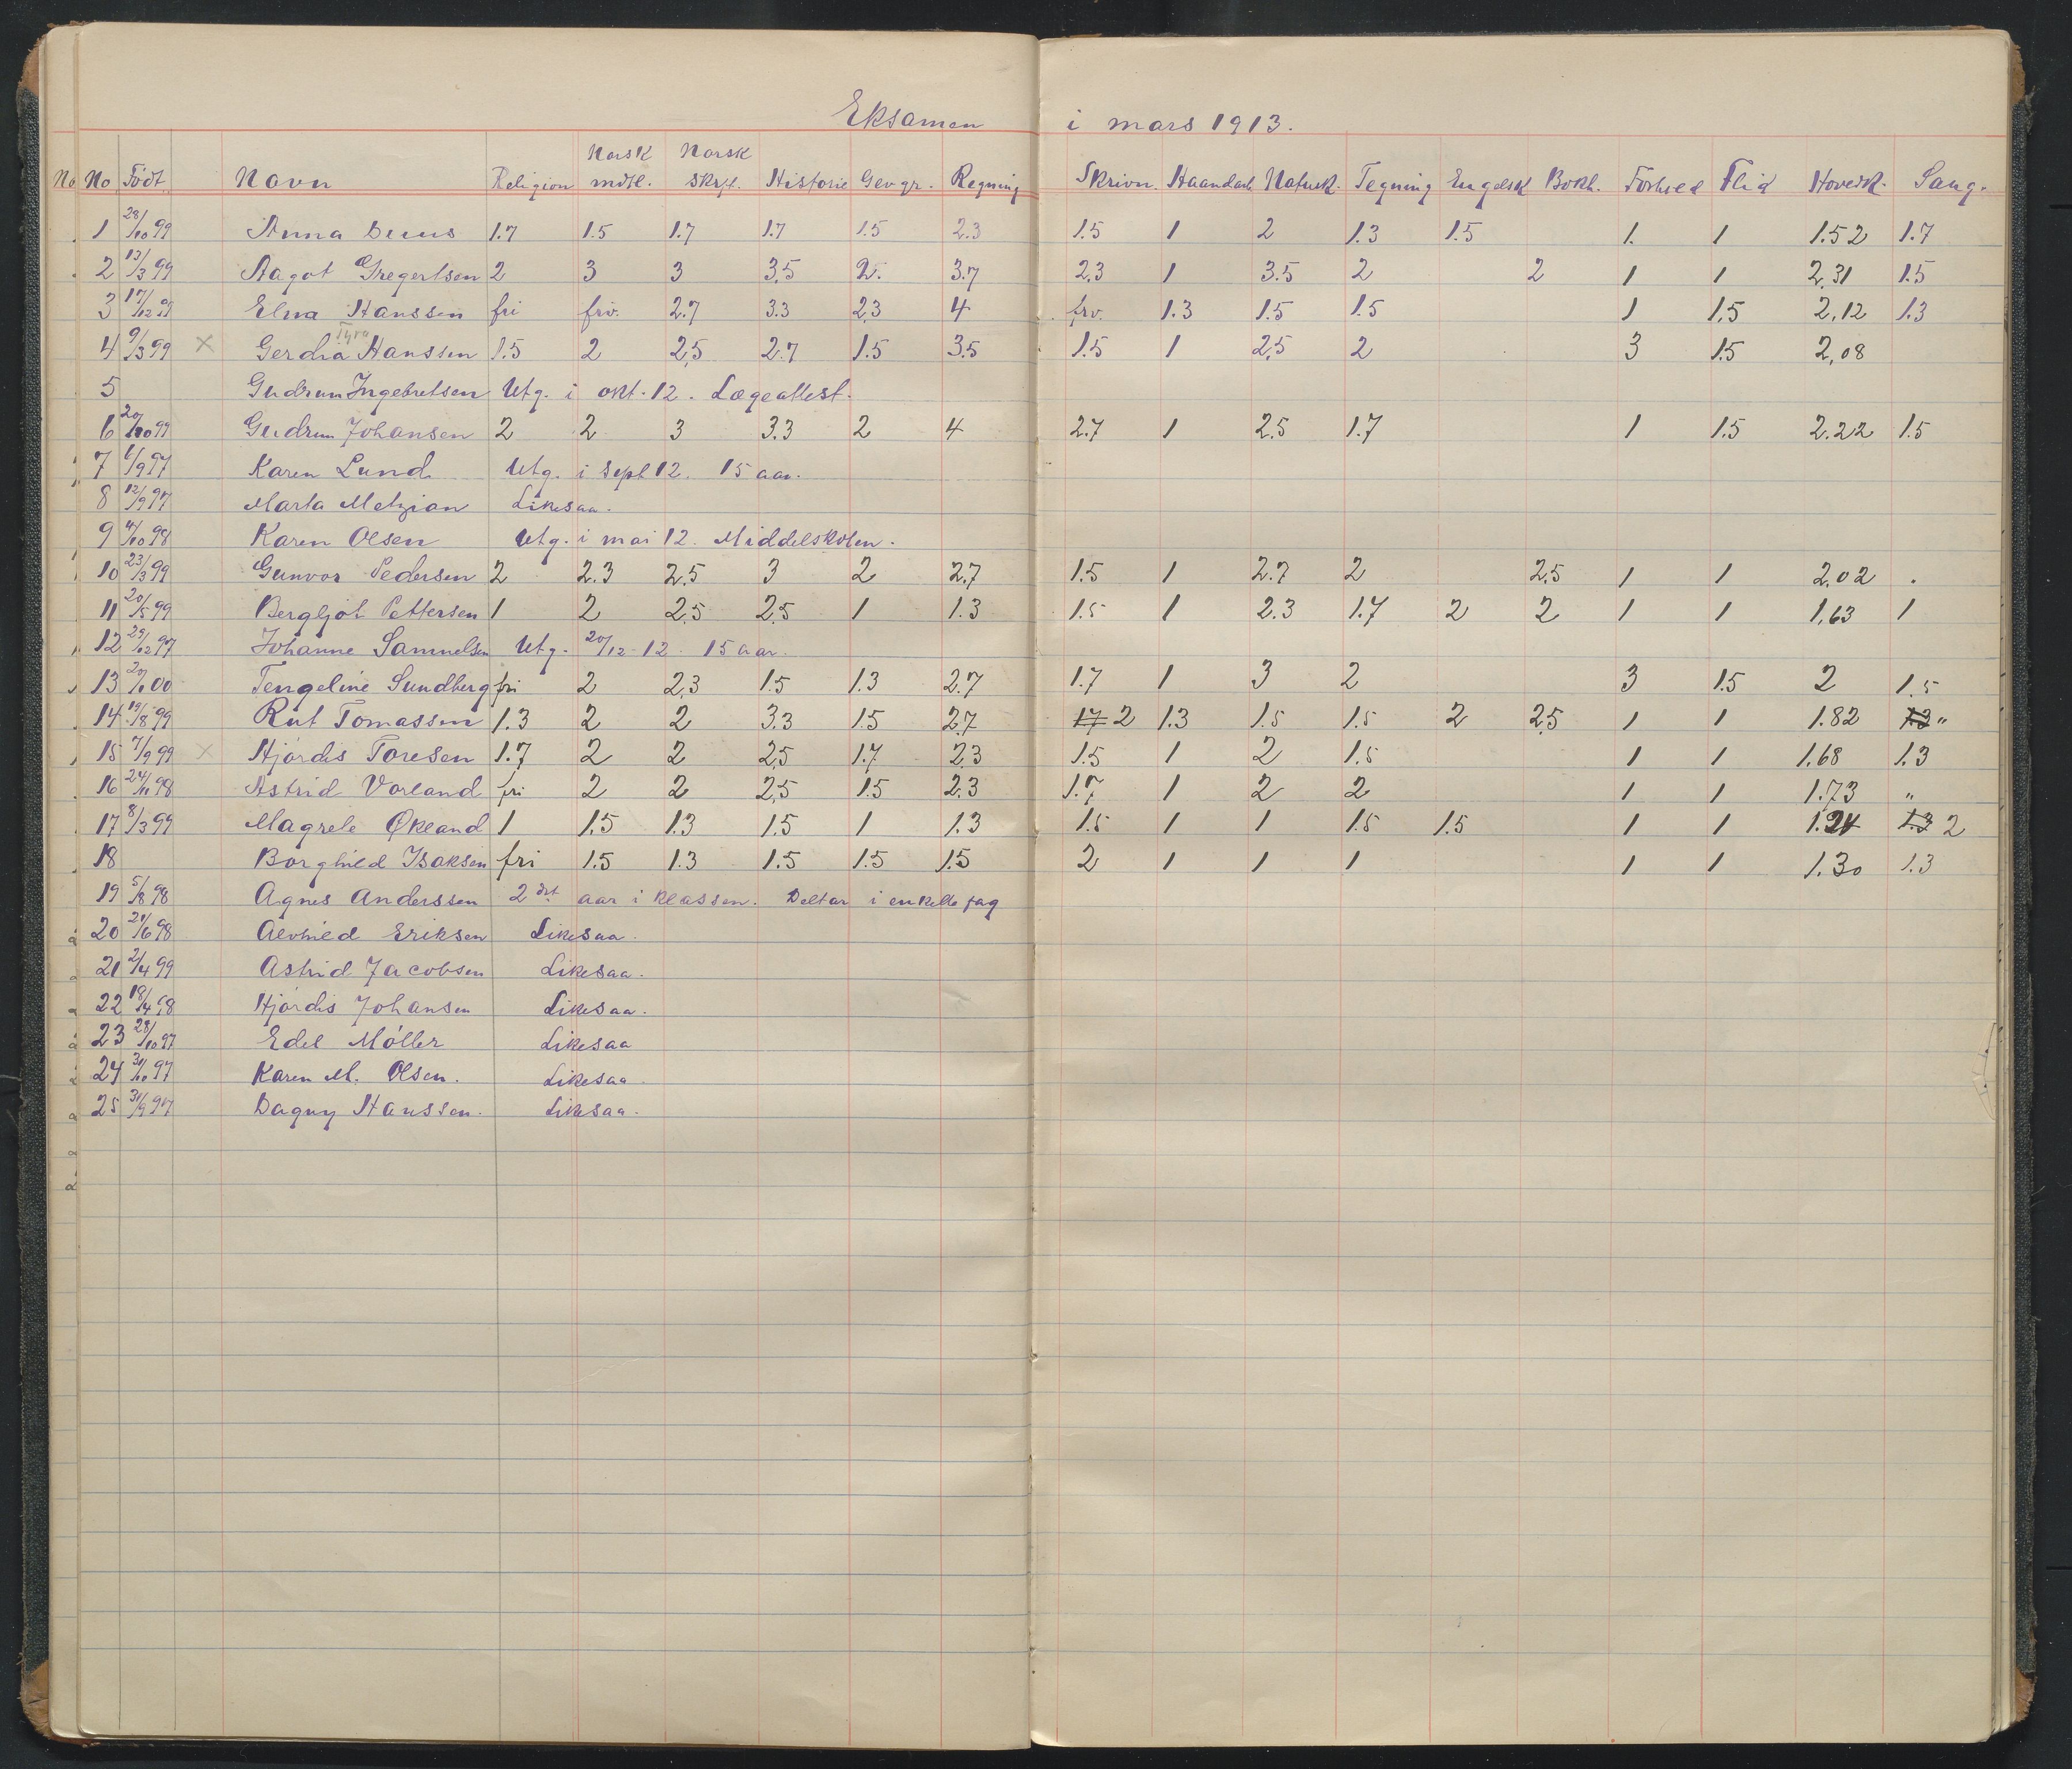 Eksamen i mars 1913.
No No Født Navn Religion Norsk mdtl. Norsk skrftl. Historie Geogr. Regning Skrivn. Haandarb. Naturk. Tegning Engelsk Bokh. Forhold Flid Hovedk. Sang.
1 28/10 99 Anna 1.7 1.5 1.7 1.7 1.5 2.3 1.5 1 2 1.3 1.5 1. 1 1.52 1.7
2 13/3 99 Aagot Gregertsen 2 3 3 3.5 2. 3.7 2.3 1 3.5 2 2 1 1 2,31 1.5
3 17/12 99 Elna Hanssen fri frv. 2.7 3.3 2,3 4 frv. 1.3 1.5 1.5 1 1,5 2,12 1.3
Tyra
4 9/3 99 × Gerda Hanssen 1.5 2 2,5 2.7 1.5 3.5 1.5 1 2,5 2 3 1.5 2,08
5 Gudrun Ingebretsen Utg. i okt. 12. Lægeattest.
6 20/10 99 Gudrun Johansen 2 2 3 3.3 2 4 2.7 1 2.5 1.7 1 1.5 2.22 1.5
7 6/9 97 Karen Lund Utg. i sept 12. 15 aar.
8 12/9 97 Marta Metzion Likesaa.
9 4/10 98 Karen Olsen Utg. i mai 12. Middelskolen.
10 23/3 99 Gunvor Pedersen 2 2.3 2.5 3 2 2.7 1.5 1 2.7 2 2,5 1 1 2,02 .
11 20/5 99 Bergljot Pettersen 1 2 2,5 2,5 1 1.3 1.5 1 2.3 1.7 2 2 1 1 1,63 1
12 29/12 97 Johanne Samuelsen Utg. 20/12 12. 15 aar.
13 20/1 00 Tengeline Sundberg fri 2 2,3 1.5 1.3 2.7 1.7 1 3 2 3 1.5 2 1.5
14 19/8 99 Rut Tomassen 1.3 2 2 3.3 1.5 2.7 1.7 2 1.3 1.5 1.5 2 2,5 1 1 1.82 1.3 "
15 7/9 99 × Hjørdis Toresen 1.7 2 2 2,5 1.7 2.3 1.5 1 2 1.5 1 1 1,68 1.3
16 24/11 98 Astrid Vorland fri 2 2 2,5 1.5 2.3 1.7 1 2 2 1 1 1.73 "
17 8/3 99 Magrete Økland 1 1.5 1.3 1.5 1 1.3 1.5 1 1 1.5 1.5 1 1 1.24 1.3 2
18 Borghild Isaksen fri 1.5 1.3 1.5 1.5 1.5 2 1 1 1 1 1 1.30 1.3
19 5/8 98 Agnes Anderssen 2det aar i klassen. Deltar i enkelte fag
20 21/6 98 Alvhild Eriksen Likesaa.
21 2/4 99 Astrid Jacobsen Likesaa.
22 18/4 98 Hjørdis Johansen Likesaa.
23 28/10 97 Edel Møller Likesaa
24 30/10 97 Karen M. Olsen. Likesaa.
25 30/9 97 Dagny Hanssen. Likesaa.